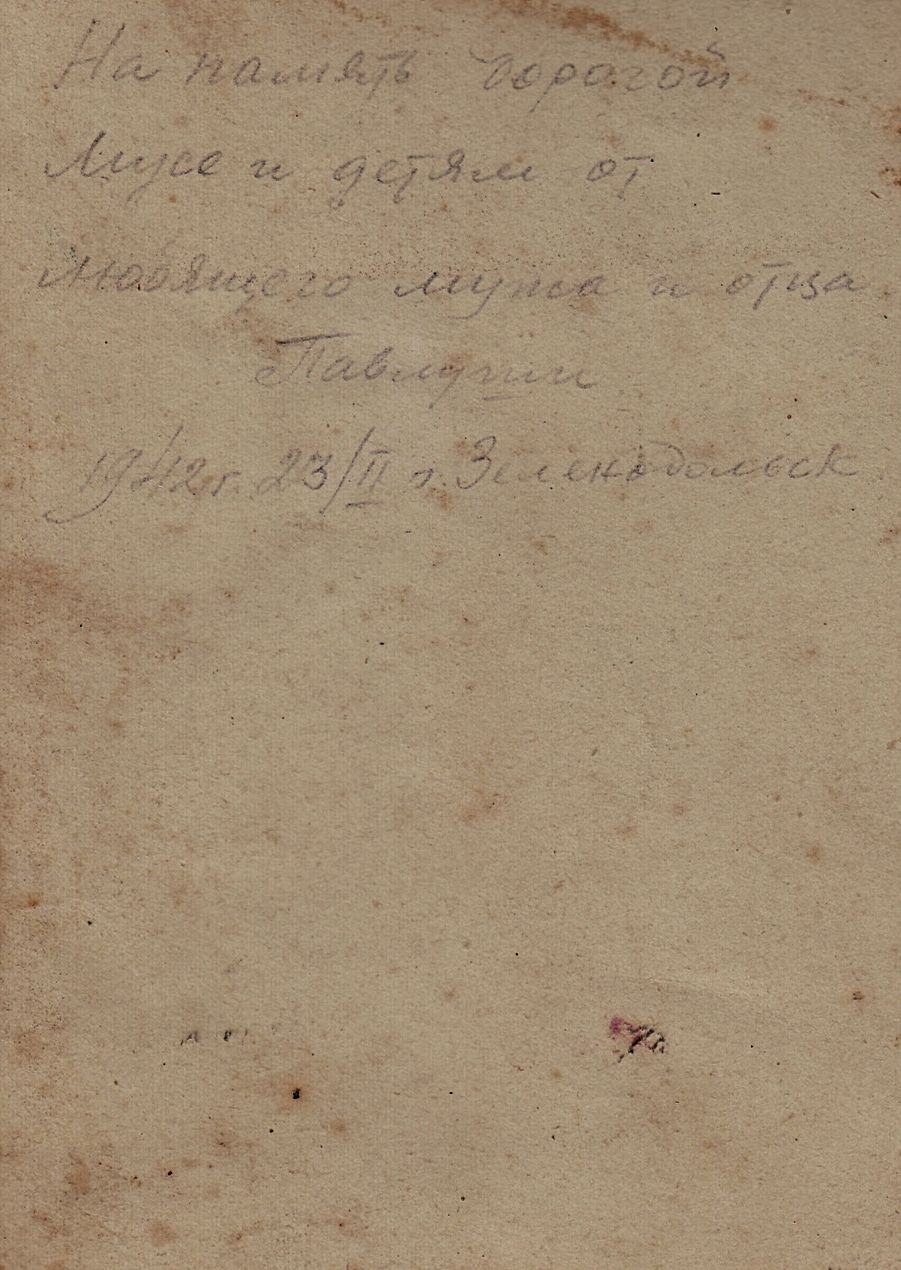 На память дорогой
Мусе и детям от
любящего мужа и отца
Павлуши
1942 г. 23/II г. Зеленодольск